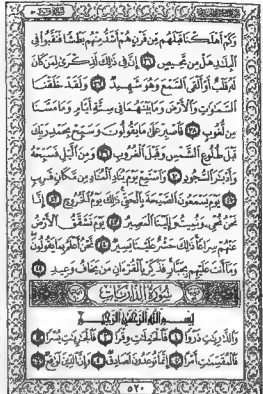 وَكَمْ أَهْلَكْنَا قَبْلَهُم مِّن قَرْنٍ هُمْ أَشَدُّ مِنْهُم بَطْشًا فَنَقَّبُوا۟ فِى
ٱلْبِلَٰدِ هَلْ مِن مَّحِيصٍ ٣٦ إِنَّ فِى ذَٰلِكَ لَذِكْرَىٰ لِمَن كَانَ
لَهُۥ قَلْبٌ أَوْ أَلْقَى ٱلسَّمْعَ وَهُوَ شَهِيدٌ ٣٧ وَلَقَدْ خَلَقْنَا
ٱلسَّمَٰوَٰتِ وَٱلْأَرْضَ وَمَا بَيْنَهُمَا فِى سِتَّةِ أَيَّامٍ وَمَا مَسَّنَا
مِن لُّغُوبٍ ٣٨ فَٱصْبِرْ عَلَىٰ مَا يَقُولُونَ وَسَبِّحْ بِحَمْدِ رَبِّكَ
قَبْلَ طُلُوعِ ٱلشَّمْسِ وَقَبْلَ ٱلْغُرُوبِ ٣٩ وَمِنَ ٱلَّيْلِ فَسَبِّحْهُ
وَأَدْبَٰرَ ٱلسُّجُودِ ٤٠ وَٱسْتَمِعْ يَوْمَ يُنَادِ ٱلْمُنَادِ مِن مَّكَانٍ قَرِيبٍ
٤١ يَوْمَ يَسْمَعُونَ ٱلصَّيْحَةَ بِٱلْحَقِّ ذَٰلِكَ يَوْمُ ٱلْخُرُوجِ ٤٢ إِنَّا
نَحْنُ نُحْىِۦ وَنُمِيتُ وَإِلَيْنَا ٱلْمَصِيرُ ٤٣ يَوْمَ تَشَقَّقُ ٱلْأَرْضُ
عَنْهُمْ سِرَاعًا ذَٰلِكَ حَشْرٌ عَلَيْنَا يَسِيرٌ ٤٤ نَّحْنُ أَعْلَمُ بِمَا يَقُولُونَ
وَمَآ أَنتَ عَلَيْهِم بِجَبَّارٍ فَذَكِّرْ بِٱلْقُرْءَانِ مَن يَخَافُ وَعِيدِ ٤٥
سُورَةُ الذَّارِيَاتِ
بِسْمِ ٱللَّهِ ٱلرَّحْمَٰنِ ٱلرَّحِيمِ
وَٱلذَّٰرِيَٰتِ ذَرْوًا ١ فَٱلْحَٰمِلَٰتِ وِقْرًا ٢ فَٱلْجَٰرِيَٰتِ يُسْرًا ٣
فَٱلْمُقَسِّمَٰتِ أَمْرًا ٤ إِنَّمَا تُوعَدُونَ لَصَادِقٌ ٥ وَإِنَّ ٱلدِّينَ لَوَٰقِعٌ ٦
٥٢٠